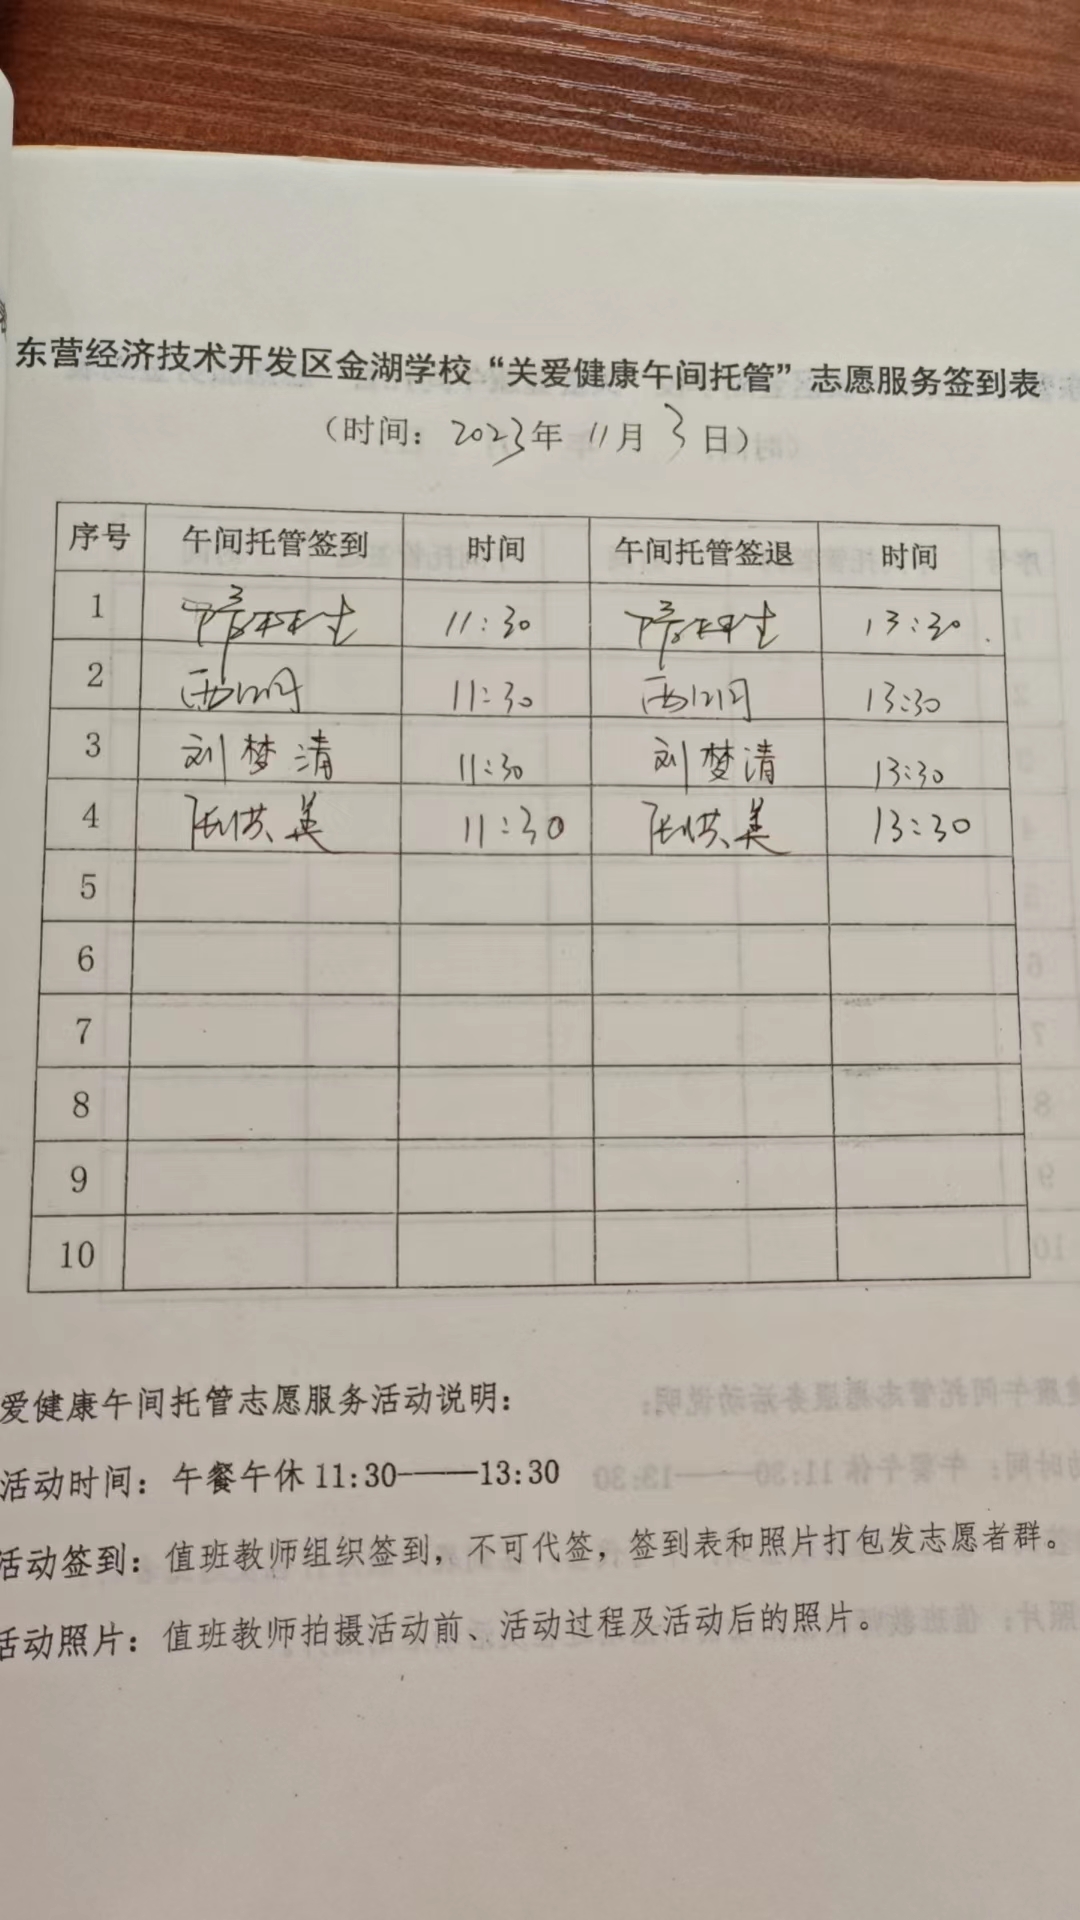 东营经济技术开发区金湖学校“关爱健康午间托管”志愿服务签到表
（时间：2023年 11月 3日）
序号 午间托管签到 时间 午间托管签退 时间
1 11:30 13:30
2 11:30 13:30
3 刘梦清 11:30 刘梦清 13:30
4 张洪美 11:30 张洪美 13:30
5
6
7
8
9
10
爱健康午间托管志愿服务活动说明：
活动时间：午餐午休 11:30——13:30
活动签到：值班教师组织签到，不可代签，签到表和照片打包发志愿者群。
活动照片：值班教师拍摄活动前、活动过程及活动后的照片。